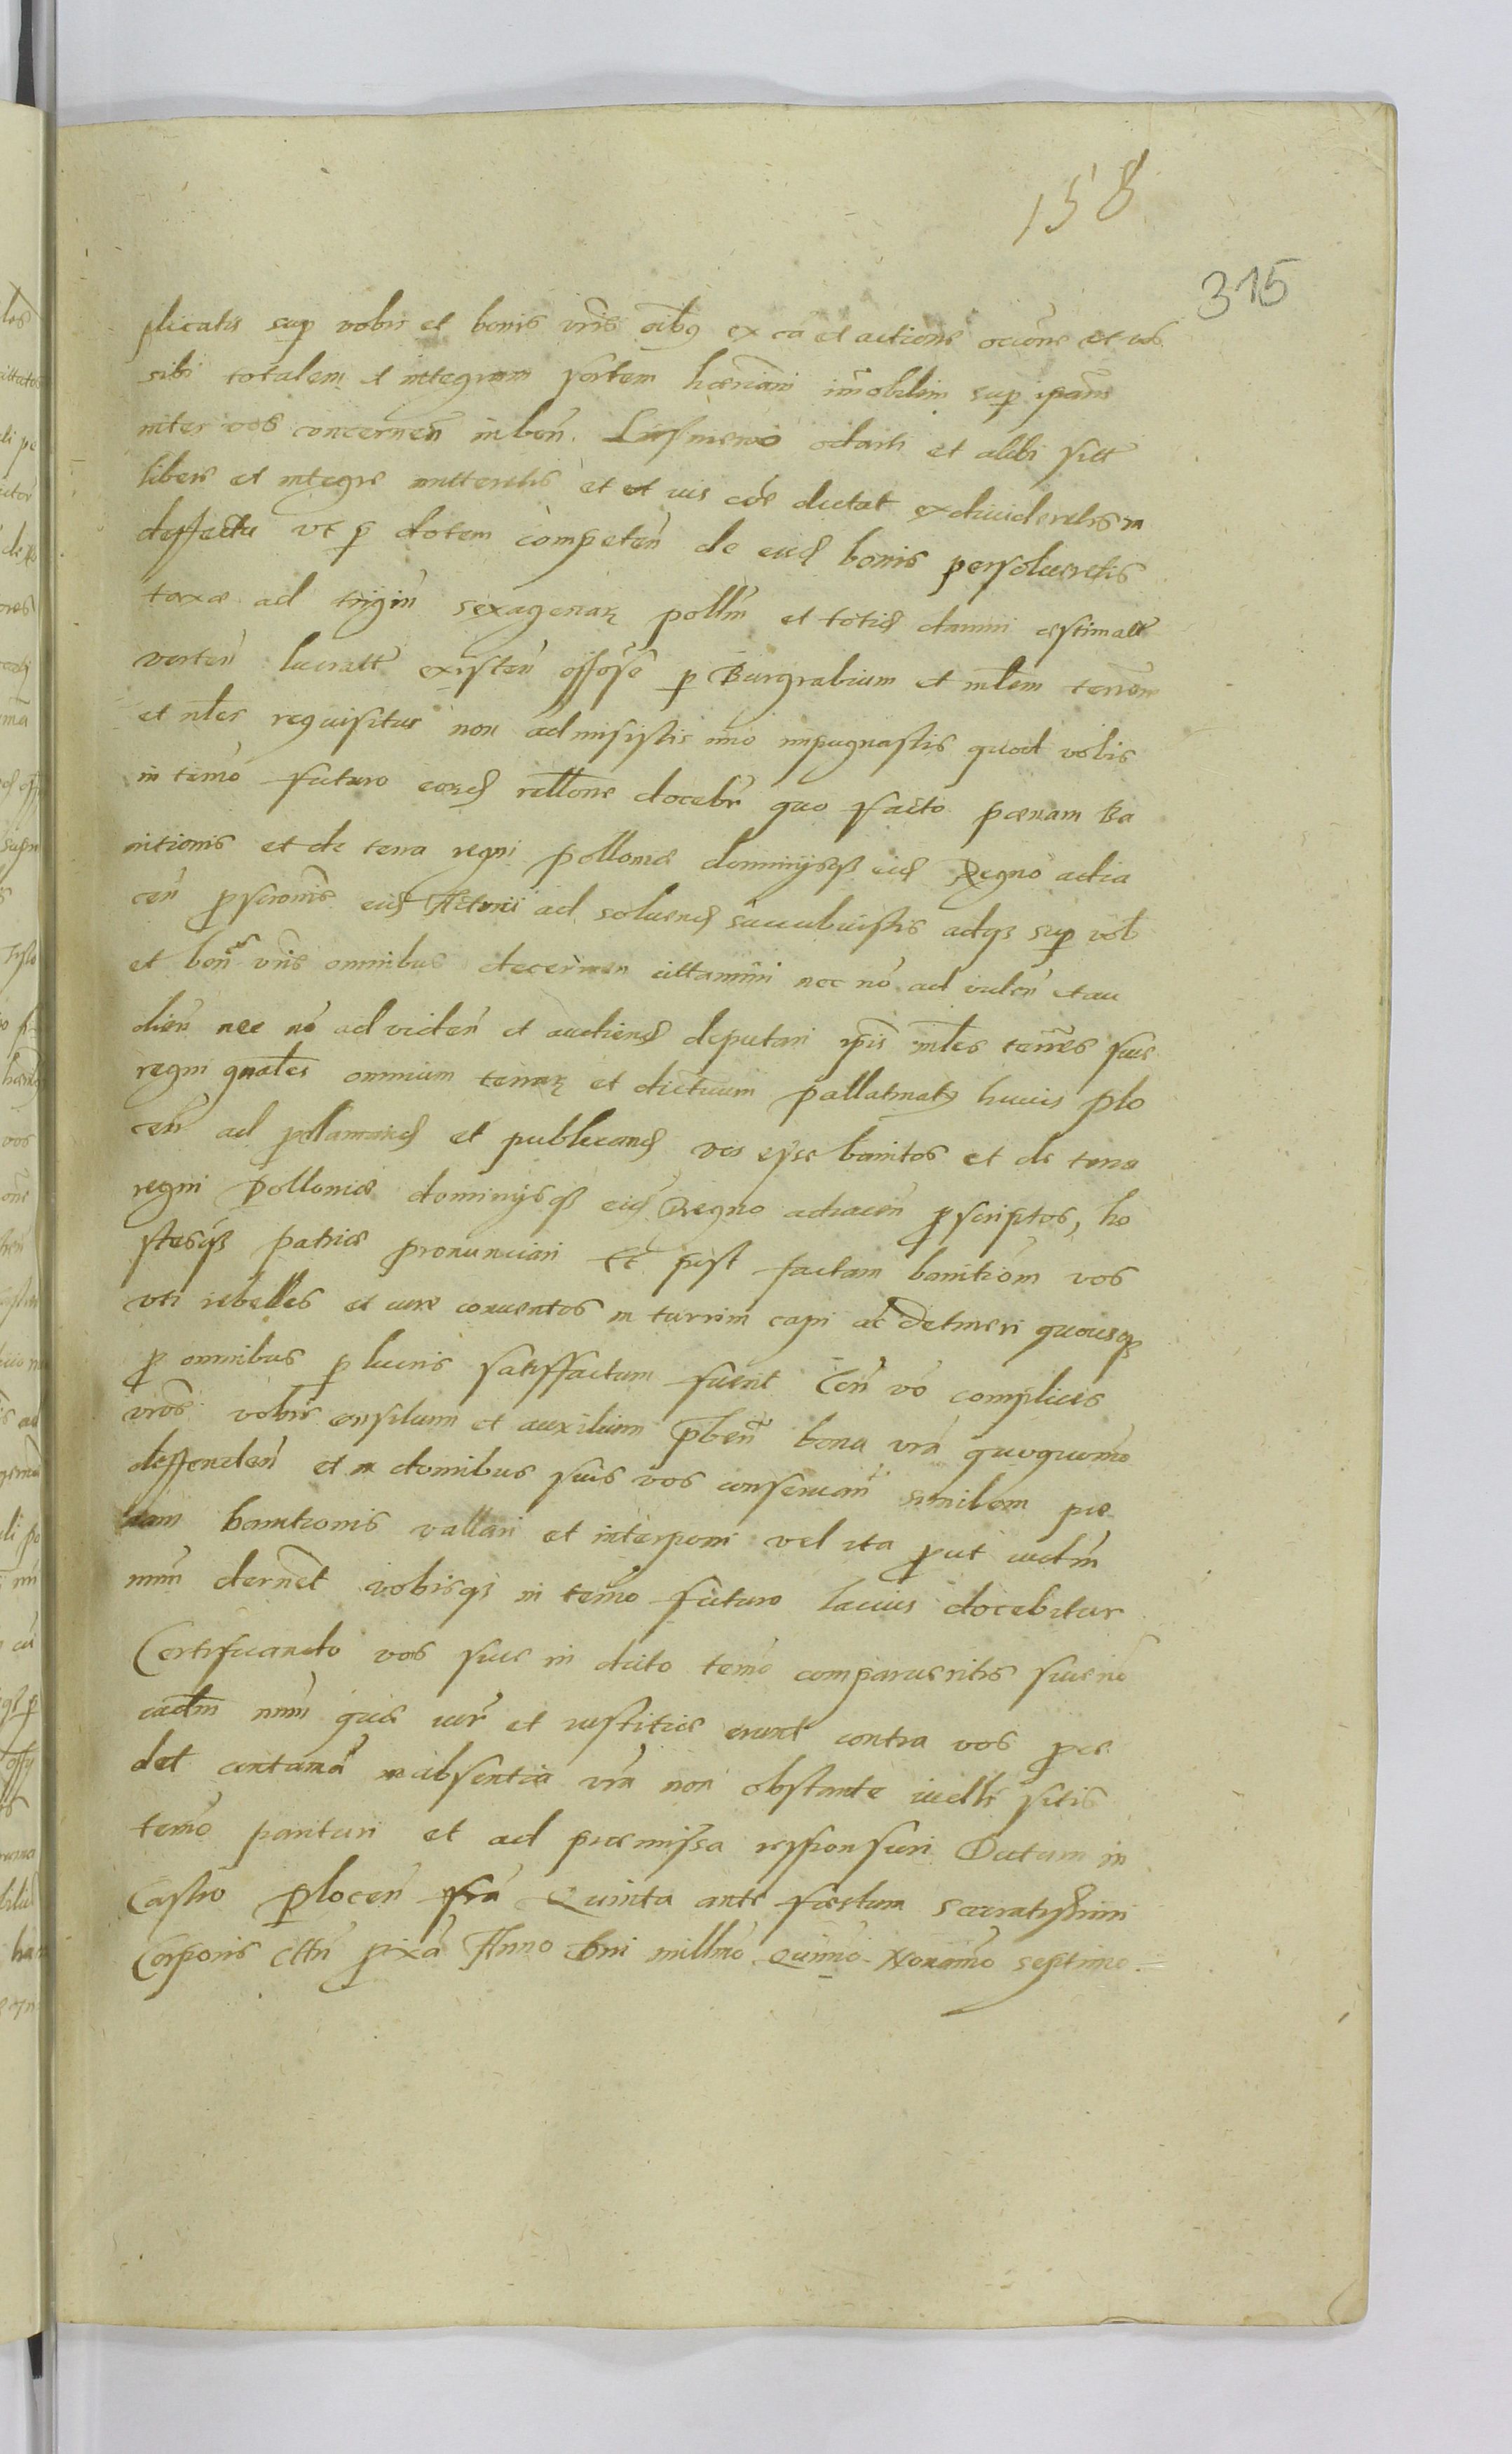 158
315
plicatis sup vobis et bonis vris oibus ex ca et actione ocione et vos
sibi totalem et integram sortem haeriam imobilim sup ipam
niter vos concernen in bon. odarti et alibi sitt
libere et integre mitteretis et et ius coe dictat exdivideretis in
deffectu vt p dotem competen de eisd bonis persolveretis
taxae ad trigin sexagenar pollm et totid damni estimatt
verten lucratt existen offose p Burgrabium et mlem terrem
et nles requisitus non admisistis imo impugnastis quod vobis
in temo futuro eord rellone docebr quo facto paenam Ba
nitionis et de terra regni pollomae dominijsq eid Regno adia
cen pscionis eid Actori ad solvend succubuistis adq sup vob
et bon vris omnibus decernen cittamini nec no ad viden et au
dien nec no ad viden et audiend deputari ipis mles terres sive
regni gnales omnium terrar et dictuum pallatinatus huius plo
cen ad pllamand et publicand vos esse banitos et de terra
regni Polloniae dominijsq eid Regno adiacen pscriptos, ho
stesq patriae pronunciari Et post factam banitiom vos
vti rebelles et iure conventos in turrim capi ac detineri quousq
p omnibus p lucris satisffactum fuerit Con vo complices
vros vobis consilium et auxilium pben bona vra quoquomo
deffenden et in domibus suis vos conservan similem poe
nam banitionis vallari et interponi vel ita put iudm
nrum dernet vobisq in temo futuro lacius docebitur
Certificando vos sive in dicto temo comparueritis sive no
iudm nrum quae iur et iustitiae erunt contra vos pce
det contuma absentia vra non obstante iudli sitis
temo parituri et ad praemissa responsuri Datum in
Castro plocen fra Quinta ante festum sacratissimi
Corporis Chri pixa Anno Dni millmo Quinmo Nonamo septimo